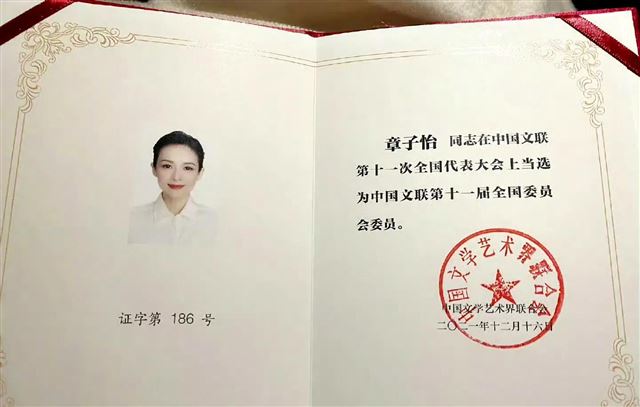 证字第 186 号
章子怡 同志在中国文联
第十一次全国代表大会上当选
为中国文联第十一届全国委员
会委员。
中国文学艺术界联合会
中国文学艺术界联合会
二〇二一年十二月十六日